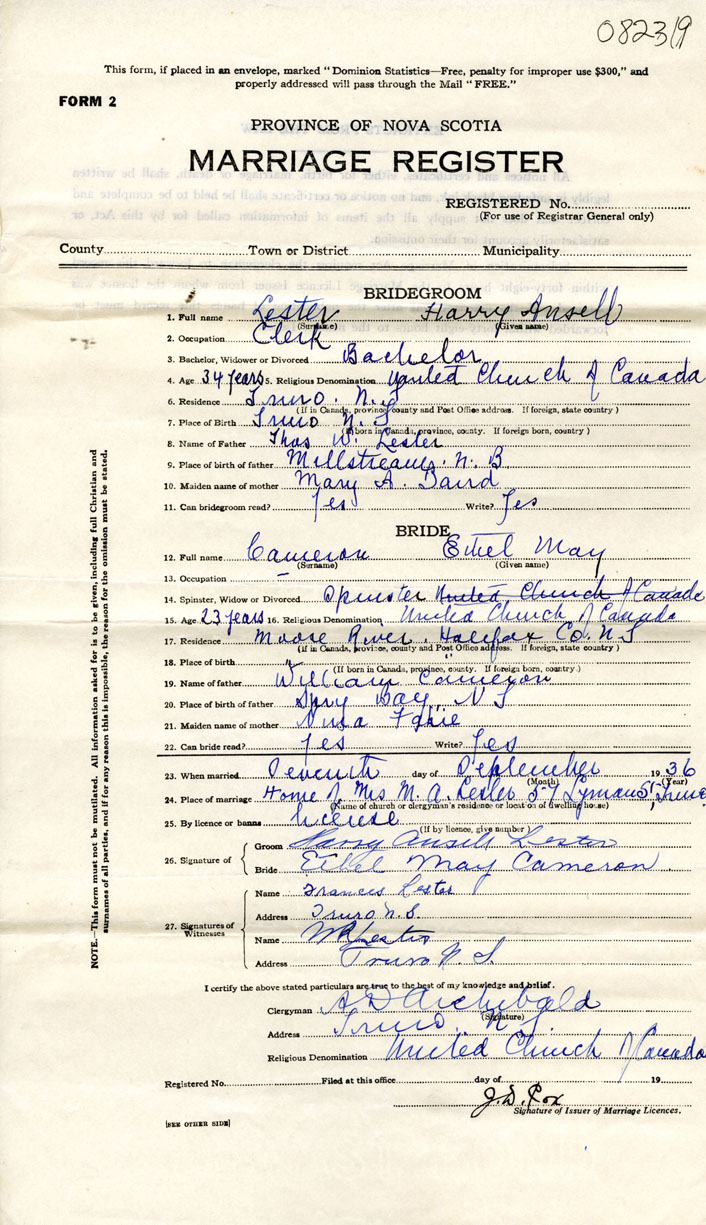 082319
This form, if placed in an envelope, marked "Dominion Statistics—Free, penalty for improper use $300," and
properly addressed will pass through the Mail "FREE."
FORM 2
PROVINCE OF NOVA SCOTIA
MARRIAGE REGISTER
REGISTERED No.
(For use of Registrar General only)
County Town or District Municipality
BRIDEGROOM
1. Full name Lester Harry Ansell
(Surname) (Given name)
2. Occupation Clerk
3. Bachelor, Widower or Divorced Bachelor
4. Age 34 years 5. Religious Denomination United Church of Canada
6. Residence Truro. N.S
(If in Canada, province, county and Post Office address. If foreign, state country)
7. Place of Birth Truro N.S
(If born in Canada, province, county. If foreign born, country)
8. Name of Father Thos W. Lester
9. Place of birth of father Millstream, N. B
10. Maiden name of mother Mary A. Baird
11. Can bridegroom read? Yes Write? Yes
BRIDE
12. Full name Cameron Ethel May
(Surname) (Given name)
13. Occupation —
14. Spinster, Widow or Divorced Spinster United Church of Canada
15. Age 23 years 16. Religious Denomination United Church of Canada
17. Residence Moose River. Halifax Co. N S
(If in Canada, province, county and Post Office address. If foreign, state country)
18. Place of birth " "
(If born in Canada, province, county. If foreign born, country.)
19. Name of father William Cameron
20. Place of birth of father Spry Bay, N S
21. Maiden name of mother
22. Can bride read? Yes Write? Yes
23. When married Seventh day of September 1936
(Month) (Year)
24. Place of marriage Home of Mrs M. A. Lester 57 Lyman St, Truro
(Name of church or clergyman's residence or location of dwelling house)
25. By licence or banns license
(If by licence, give number)
26. Signature of
Groom Harry Ansell Lester
Bride Ethel May Cameron
27. Signatures of Witnesses
Name Frances Lester
Address Truro N.S.
Name Lester
Address Truro N. S.
I certify the above stated particulars are true to the best of my knowledge and belief.
Clergyman A D Archibald
(Signature)
Address Truro, N S
Religious Denomination United Church of Canada
Registered No. Filed at this office day of 19
J. D. Cox
Signature of Issuer of Marriage Licences.
[SEE OTHER SIDE]
NOTE.—This form must not be mutilated. All information asked for is to be given, including full Christian and
surnames of all parties, and if for any reason this is impossible, the reason for the omission must be stated.